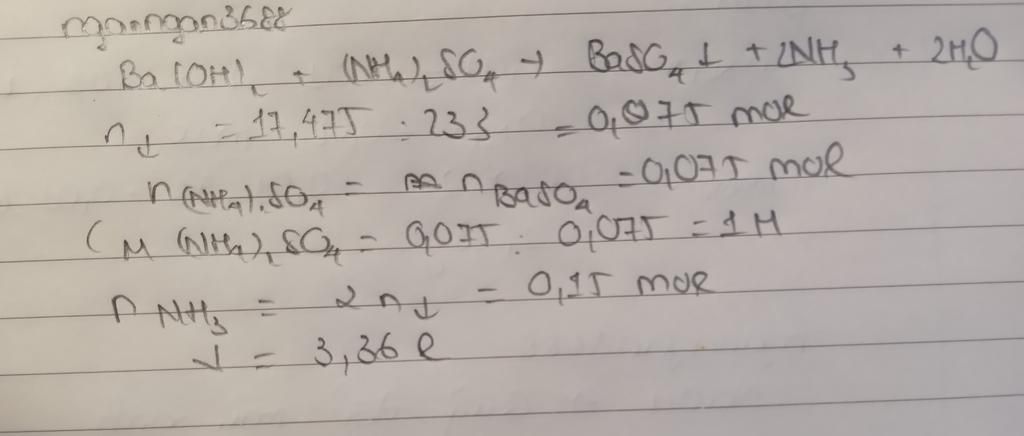 mganngan3688
Ba(OH)₂ + (NH₄)₂SO₄ → BaSO₄↓ + 2NH₃ + 2H₂O
n↓ = 17,475 : 233 = 0,075 mol
n(NH₄)₂SO₄ = n BaSO₄ = 0,075 mol
CM (NH₄)₂SO₄ = 0,075 : 0,075 = 1M
n NH₃ = 2n↓ = 0,15 mol
V = 3,36 l